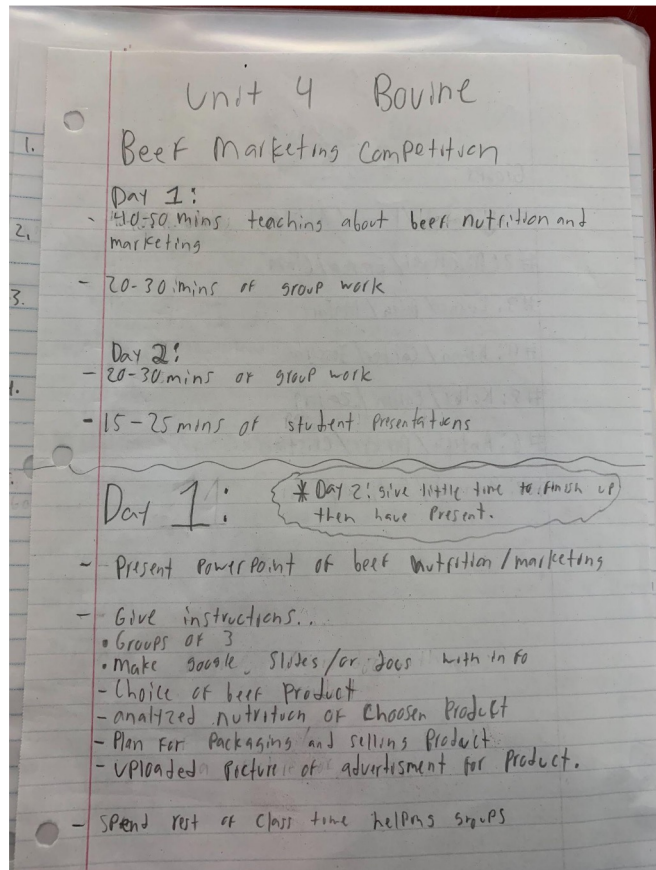 Unit 4 Bovine
1.
Beef Marketing Competition
Day 1:
- 40-50 mins teaching about beef nutrition and
2.
marketing
- 20-30 mins of group work
3.
Day 2:
- 20-30 mins of group work
- 15-25 mins of student presentations
Day 1:
* Day 2: give little time to finish up
then have present.
- Present PowerPoint of beef nutrition/marketing
- Give instructions..
• Groups of 3
• Make google slides/or docs with info
- Choice of beef product
- analyzed nutrition of choosen product
- Plan for packaging and selling product
- uploaded picture of advertisment for product.
- spend rest of class time helping groups